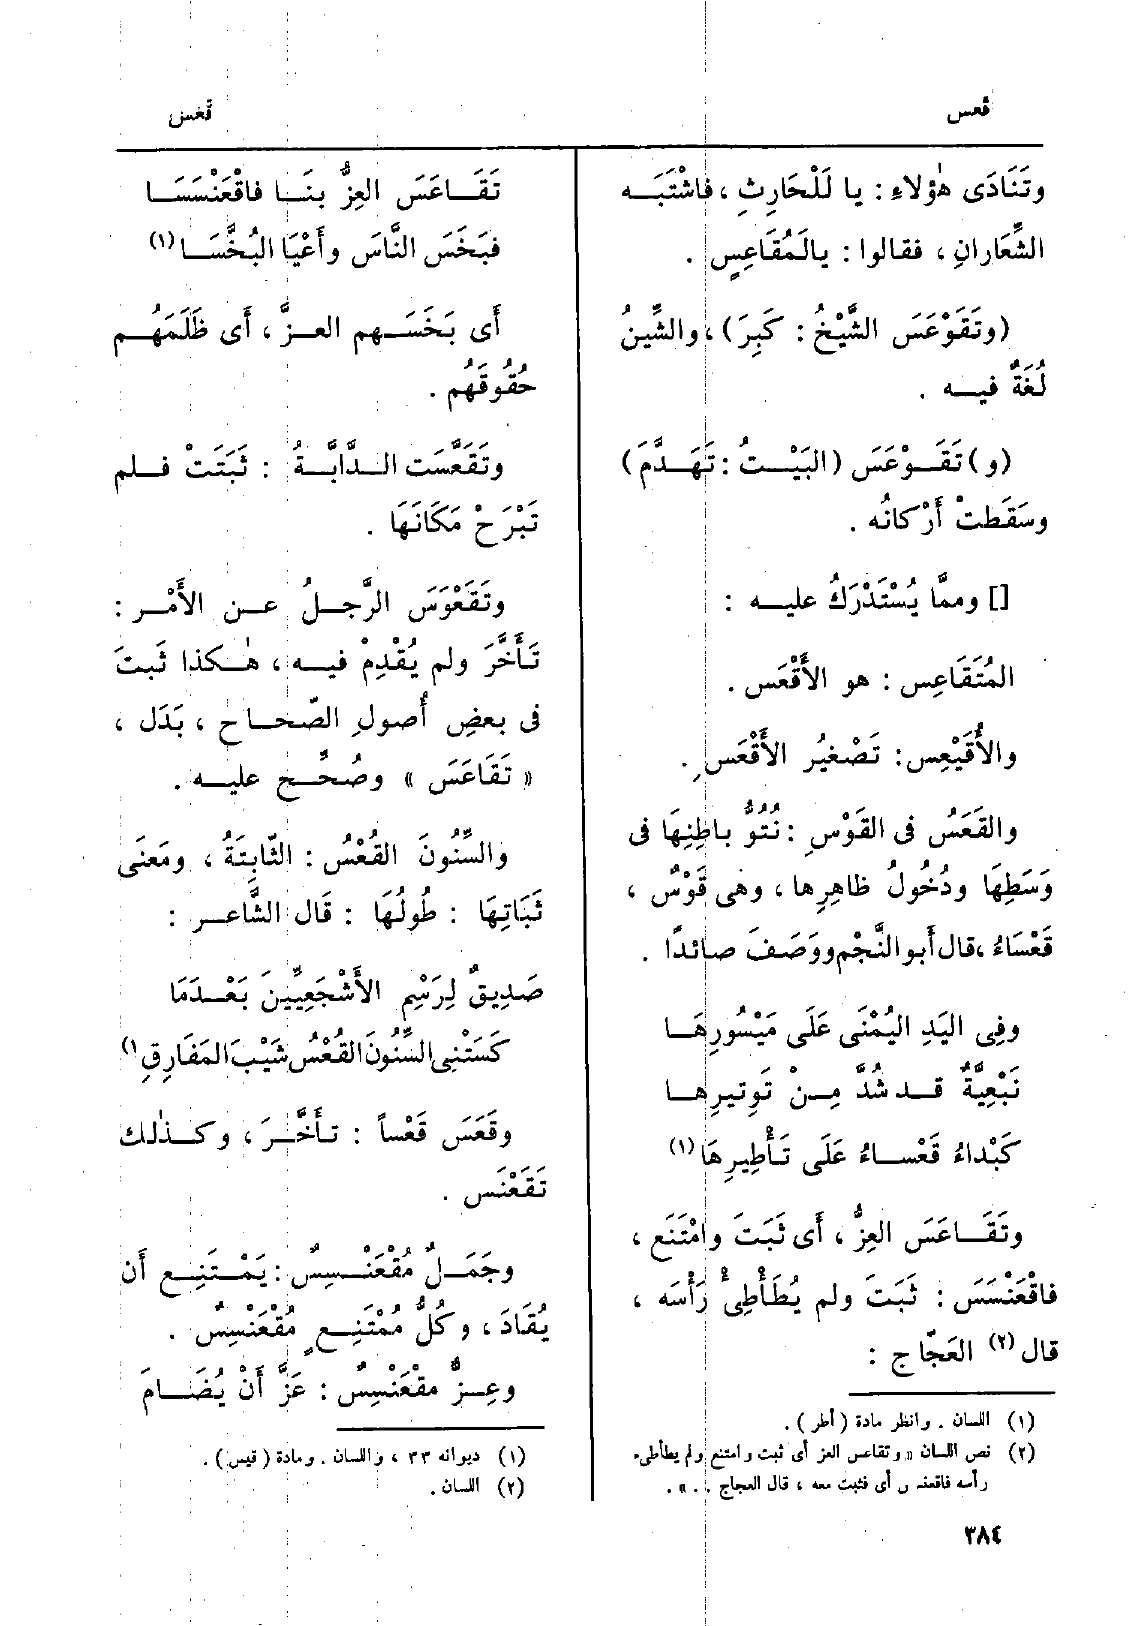 قعس
قعس
وتَنَادَى هٰؤلاءِ : يا لَلْحَارِثِ ، فاشْتَبَه
الشِّعَارانِ ، فقالوا : يالَمُقَاعِسٍ .
(وتَقَوْعَسَ الشَّيْخُ : كَبِرَ) ، والشِّينُ
لُغَةٌ فيه .
(و) تَقَوْعَسَ (البَيْتُ : تَهَدَّمَ)
وسَقَطتْ أَرْكانُه .
[] ومِمَّا يُسْتَدْرَكُ عليه :
المُتَقَاعِس : هو الأَقْعَس .
والأُقَيْعِس : تَصْغيرُ الأَقْعَسِ .
والقَعَسُ فى القَوْسِ : نُتُوُّ باطِنِهَا فى
وَسَطِهَا ودُخُولُ ظاهِرِها ، وهى قَوْسٌ ،
قَعْسَاءُ ، قال أَبو النَّجْم ووَصَفَ صائدًا .
وفِى اليَدِ اليُمْنَى عَلَى مَيْسُورِهَا
نَبْعِيَّةٌ قد شُدَّ مِنْ تَوتِيرِها
كَبْداءُ قَعْساءُ عَلَى تَأْطِيرِهَا (١)
وتَقَاعَسَ العِزُّ ، أَى ثَبَتَ وامْتَنَع ،
فاقْعَنْسَسَ : ثَبَتَ ولم يُطَأْطِىْ رَأْسَه ،
قال (٢) العَجّاج :
(١) اللسان . وانظر مادة (أطر) .
(٢) نص اللسان « وتقاعس العز أى ثبت وامتنع ولم يطأطىء
رأسه فاقعنس أى فثبت معه ، قال العجاج . . » .
تَقَاعَسَ العِزُّ بنَا فاقْعَنْسَسَا
فبَخَسَ النَّاسَ وأَعْيَا البُخَّسَا (١)
أَى بَخَسَهم العزُّ ، أَى ظَلَمَهُم
حُقُوقَهُم .
وتَقَعَّسَت الدَّابَّةُ : ثَبَتَتْ فلم
تَبْرَحْ مَكَانَهَا .
وتَقَعْوَسَ الرَّجلُ عن الأَمْر :
تَأَخَّرَ ولم يُقْدِمْ فيه ، هٰكذا ثَبتَ
فى بعضِ أُصولِ الصّحاح ، بَدَل ،
« تَقَاعَسَ » وصُحِّح عليه .
والسِّنُونَ القُعْسُ : الثّابِتَةُ ، ومَعنَى
ثَبَاتِهَا : طُولُهَا : قال الشَّاعر :
صَدِيقٌ لِرَسْمِ الأَشْجَعِيِّينَ بَعْدَمَا
كَسَتْنِى السِّنُونَ القُعْسُ شَيْبَ المَفَارِقِ (٢)
وقَعَسَ قَعْساً : تأَخَّرَ ، وكذٰلك
تَقَعْنَس .
وجَمَلٌ مُقْعَنْسِسٌ : يَمْتَنِع أَن
يُقَادَ ، وكُلُّ مُمْتَنِعٍ مُقْعَنْسِسٌ .
وعِزٌّ مقْعَنْسِسٌ : عَزَّ أَنْ يُضَامَ
(١) ديوانه ٣٣ ، واللسان . ومادة (قيس) .
(٢) اللسان .
٣٨٤